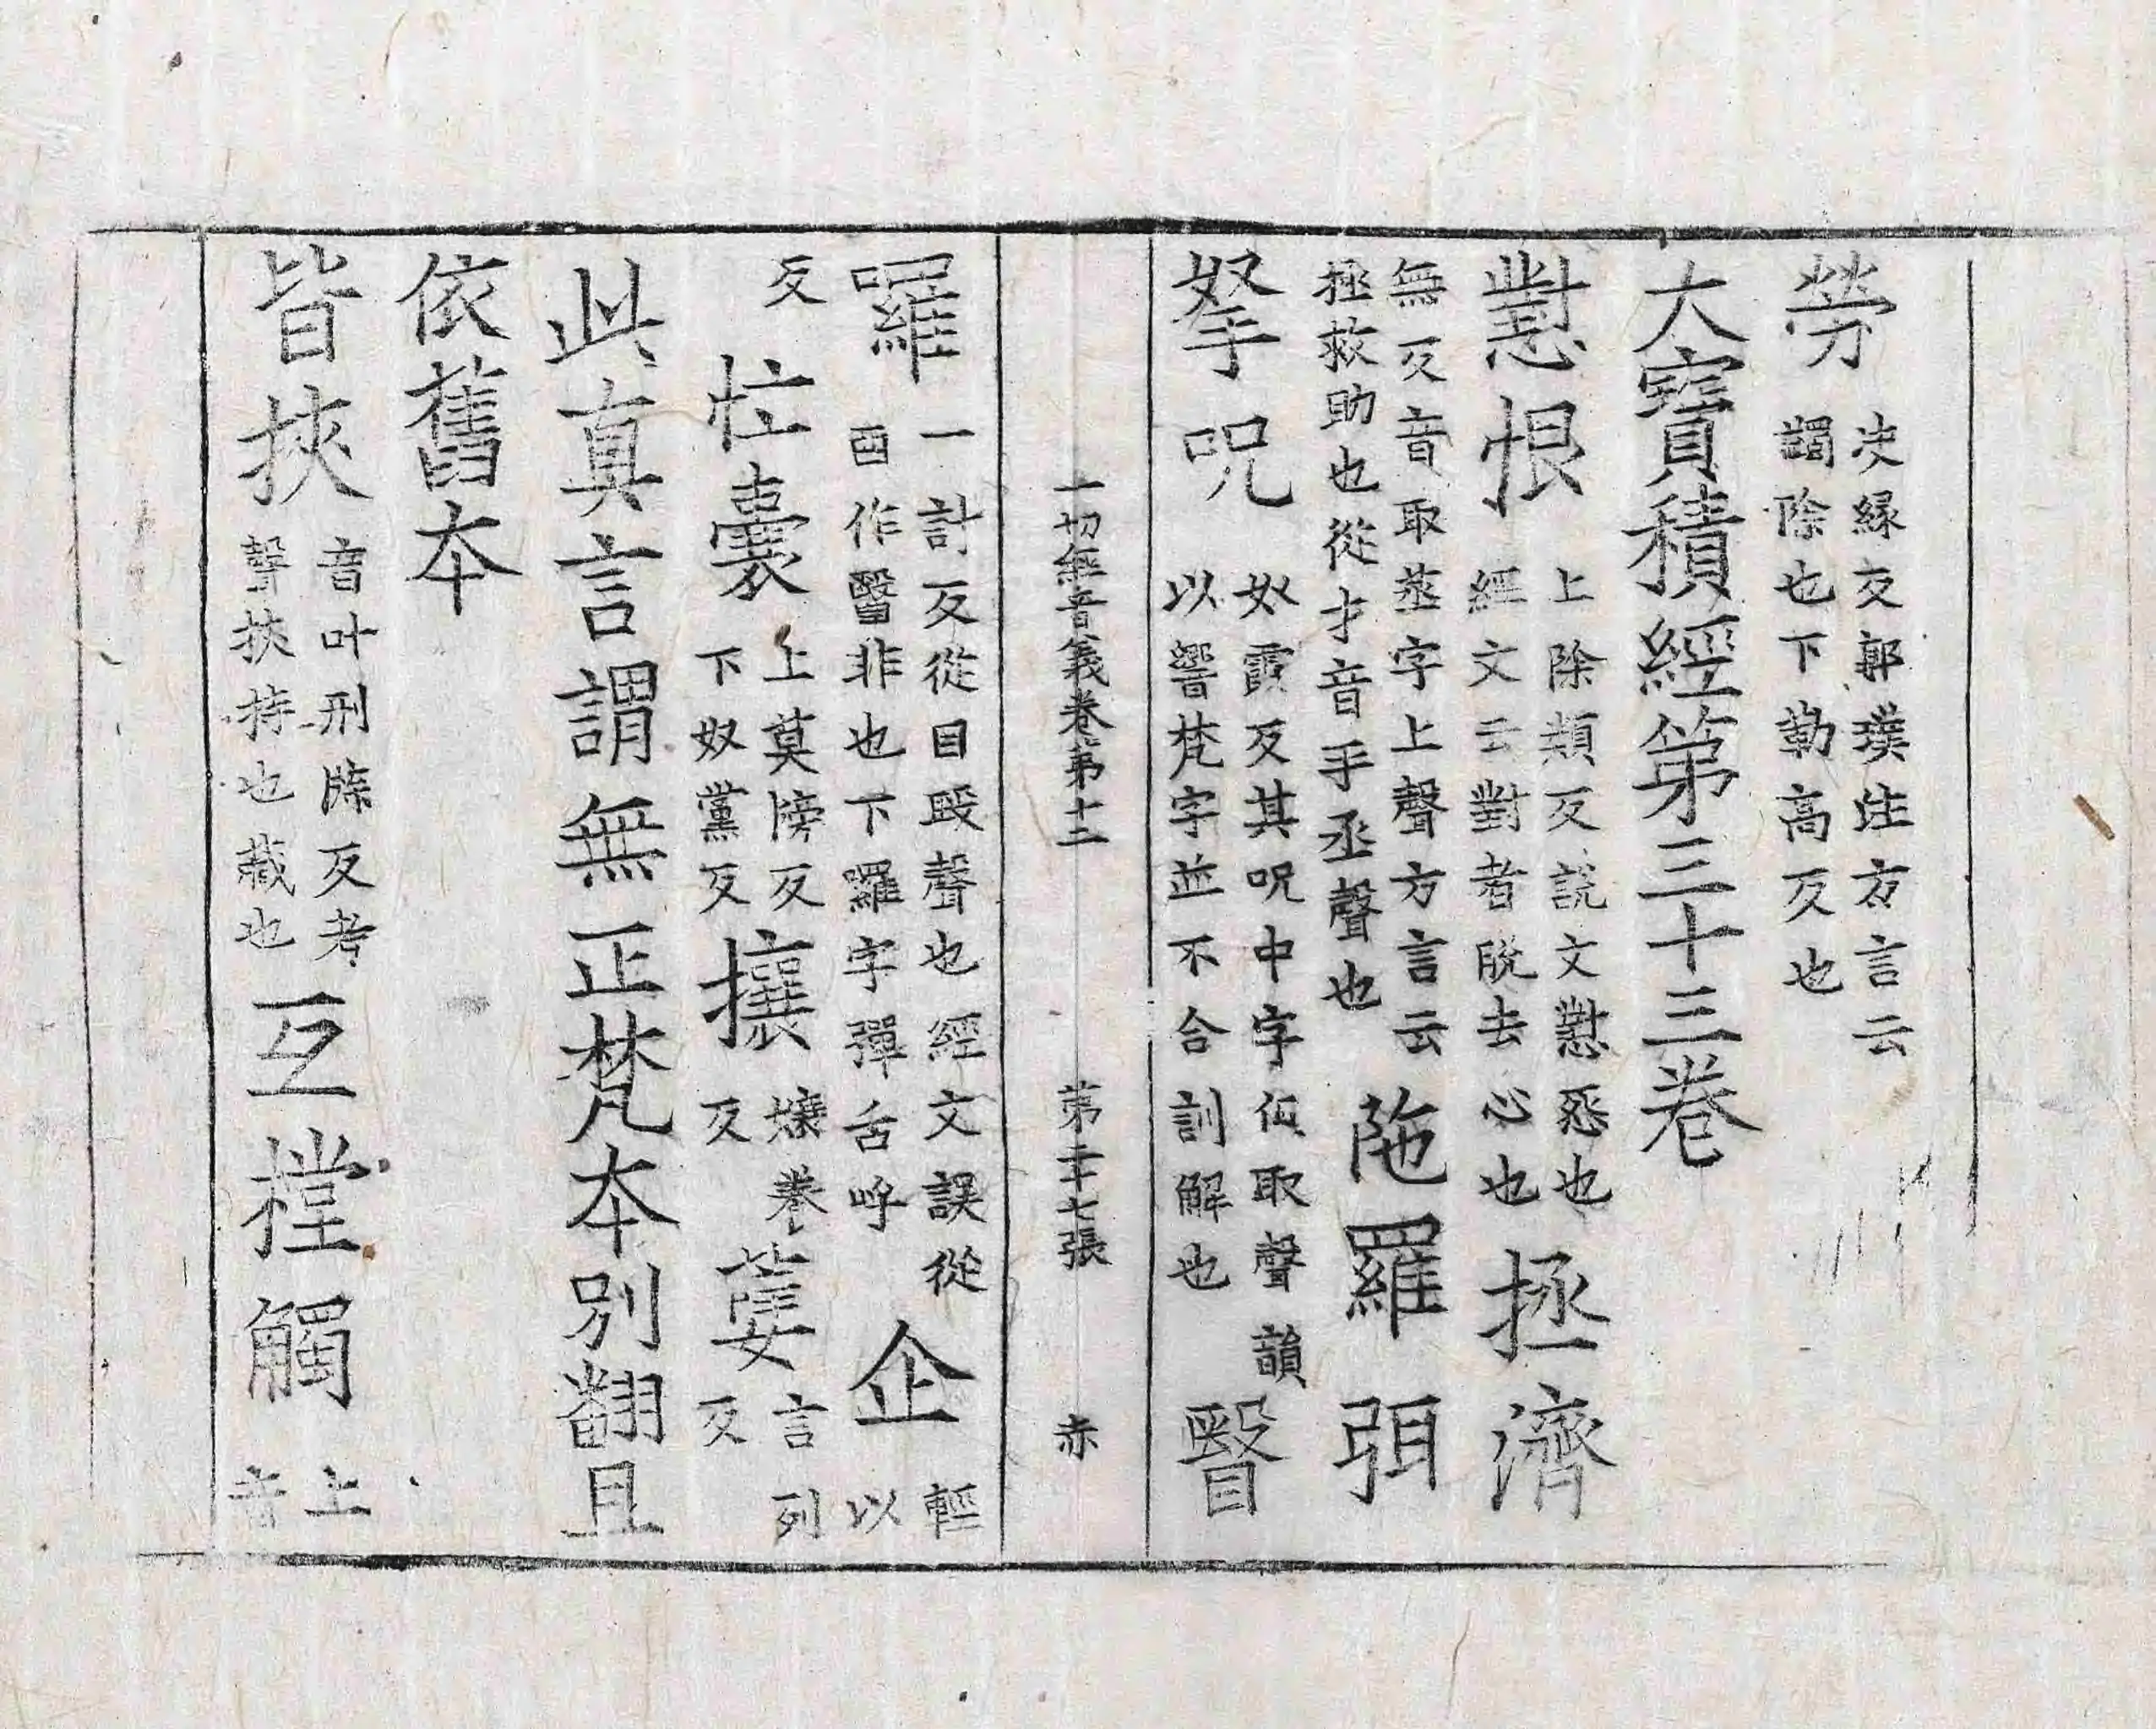 勞 決緣反郭璞注方言云
蠲除也下勒高反也
大寶積經第三十三卷
懟恨 上除類反說文懟怨也
經文云對者脫去心也 拯濟
無反音取蒸字上聲方言云
拯救助也從扌音手丞聲也 陁羅弭
拏呪 奴霞反其呪中字但取聲韻
以響梵字並不合訓解也 瞖
一切經音義卷第十二 第二十七張 赤
囉 一計反從目殹聲也經文誤從
酉作醫非也下羅字彈舌呼 企 輕
以
反 忙囊 上莫滂反
下奴黨反 攘 孃卷
反 蔓 言列
反
此真言謂無正梵本別翻且
依舊本
皆挾 音叶刑牒反考
聲挾持也藏也 互摚觸 上
音